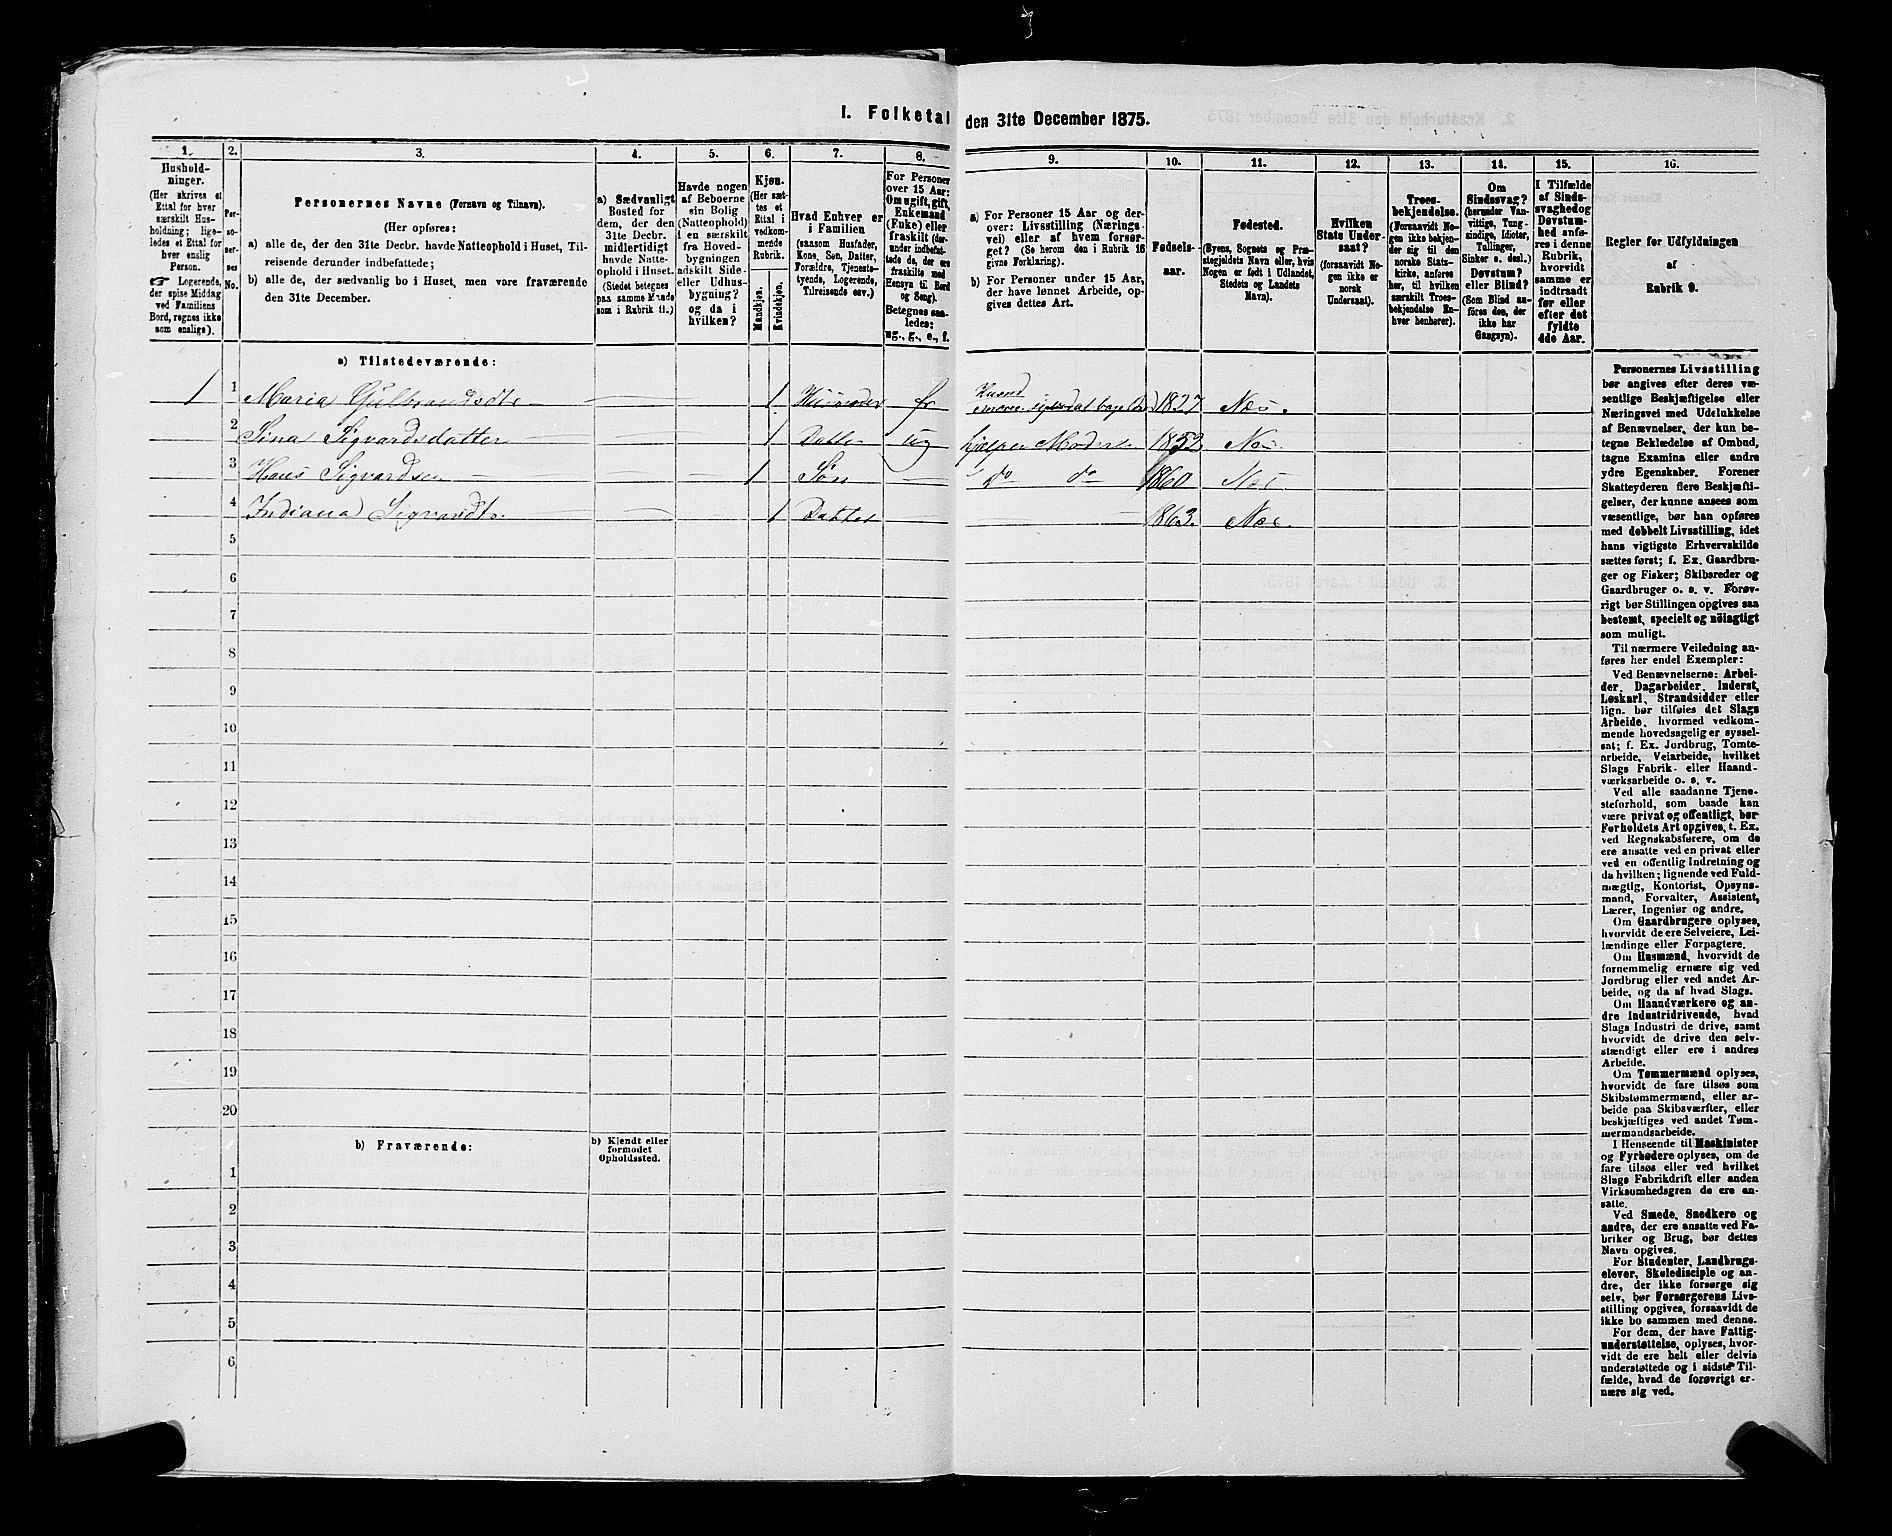 I. Folketal den 31te December 1875.
1. 2. 3. 4. 5. 6. 7. 8. 9. 10. 11. 12. 13. 14. 15. 16.
Hushold-
ninger.
(Her skrives et
Ettal for hver
særskilt Hus-
holdning; lige-
ledes et Ettal for
hver enslig
Person.
☞ Logerende,
der spise Middag
ved Familiens
Bord, regnes ikke
som enslige).
Per-
so-
ner-
nes
No.
Personernes Navne (Fornavn og Tilnavn).
(Her opføres:
a) alle de, der den 31te Decbr. havde Natteophold i Huset, Til-
reisende derunder indbefattede;
b) alle de, der sædvanlig bo i Huset, men vare fraværende
den 31te December.
a) Sædvanligt
Bosted for
dem, der den
31te Decbr.
midlertidigt
havde Natte-
ophold i Huset.
(Stedet betegnes
paa samme Maade
som i Rubrik 11.)
Havde nogen
af Beboerne
sin Bolig
(Natteophold)
i en særskilt
fra Hoved-
bygningen
adskilt Side-
eller Udhus-
bygning?
og da i
hvilken?
Kjøn.
(Her sæt-
tes et
Ettal i
vedkom-
mende
Rubrik.
Mandkjøn.
Kvindekjøn.
Hvad Enhver er
i Familien
(saasom Husfader,
Kone, Søn, Datter,
Forældre, Tjeneste-
tyende, Logerende,
Tilreisende osv.)
For Personer
over 15 Aar:
Om ugift, gift,
Enkemand
(Enke) eller
fraskilt (der-
under indbefat-
tede de, der ere
fraskilte med
Hensyn til Bord
og Seng).
Betegnes saa-
ledes:
ug., g., e., f.
a) For Personer 15 Aar og der-
over: Livsstilling (Nærings-
vei) eller af hvem forsør-
get (Se herom den i Rubrik 16
givne Forklaring).
b) For Personer under 15 Aar,
der have lønnet Arbeide, op-
gives dettes Art.
Fødsels-
aar.
Fødested.
(Byens, Sognets og Præ-
stegjeldets Navn eller, hvis
Nogen er født i Udlandet,
Stedets og Landets
Navn).
Hvilken
Stats Under-
saat?
(forsaavidt No-
gen ikke er
norsk
Undersaat).
Troes-
bekjendelse.
(Forsaavidt No-
gen ikke bekjen-
der sig til den
norske Stats-
kirke, anføres
her, til hvilken
særskilt Troes-
bekjendelse En-
hver henhører).
Om
Sindssvag?
(herunder Van-
vittige, Tung-
sindige, Idioter,
Tullinger,
Sinker o. desl.)
Døvstum?
eller Blind?
(Som Blind an-
føres den, der
ikke har
Gangsyn).
I Tilfælde
af Sinds-
svaghed og
Døvstum-
hed anfø-
res i denne
Rubrik,
hvorvidt
samme er
indtraadt
før eller
efter det
fyldte
4de Aar.
Regler for Udfyldningen
af
Rubrik 9.
a) Tilstedeværende:
1 1 Maria Gulbrandsdtr 1 Husmoder 1827 Næs.
2 Sina Sigvardsdatter 1 Datter ug hjælper Moderen 1852 Næs
3 Hans Sigvardsen 1 Søn do do 1860 Næs
4 Indiana Sigvardtr 1 Datter 1863. Næs.
5
6
7
8
9
10
11
12
13
14
15
16
17
18
19
20
b) Fraværende:
b) Kjendt eller
formodet
Opholdssted.
1
2
3
4
5
6
Personernes Livsstilling
bør angives efter deres væ-
sentlige Beskjæftigelse eller
Næringsvei med Udelukkelse
af Benævnelser, der kun be-
tegne Beklædelse af Ombud,
tagne Examina eller andre
ydre Egenskaber. Forener
Skatteyderen flere Beskjæfti-
gelser, der kunne ansees som
væsentlige, bør han opføres
med dobbelt Livsstilling, idet
hans vigtigste Erhvervskilde
sættes først; f. Ex. Gaardbru-
ger og Fisker; Skibsreder og
Gaardbruger o. s. v. Forøv-
rigt bør Stillingen opgives saa
bestemt, specielt og nöiagtigt
som muligt.
Til nærmere Veiledning an-
føres her endel Exempler:
Ved Benævnelserne: Arbei-
der, Dagarbeider, Inderst,
Løskarl, Strandsidder eller
lign. bør tilføies det Slags
Arbeide, hvormed vedkom-
mende hovedsagelig er syssel-
sat; f. Ex. Jordbrug, Tomte-
arbeide, Veiarbeide, hvilket
Slags Fabrik- eller Haand-
værksarbeide o. s. v.
Ved alle saadanne Tjene-
steforhold, som baade kan
være privat og offentligt, bør
Forholdets Art opgives, t. Ex.
ved Regnskabsførere, om de
ere ansatte ved en privat eller
ved en offentlig Indretning og
da hvilken; lignende ved Fuld-
mægtig, Kontorist, Opsyns-
mand, Forvalter, Assistent,
Lærer, Ingeniør og andre.
Om Gaardbrugere oplyses,
hvorvidt de ere Selveiere, Lei-
lændinge eller Forpagtere.
Om Husmænd, hvorvidt de
fornemmelig ernære sig ved
Jordbrug eller ved andet Ar-
beide, og da af hvad Slags.
Om Haandværkere og an-
dre Industridrivende, hvad
Slags Industri de drive, samt
hvorvidt de drive den selv-
stændigt eller ere i andres
Arbeide.
Om Tømmermænd oplyses,
hvorvidt de fare tilsøs som
Skibstømmermænd, eller ar-
beide paa Skibsværfter, eller
beskjæftiges ved andet Tøm-
mermandsarbeide.
I Henseende til Maskinister
og Fyrbødere oplyses, om de
fare tilsøs eller ved hvilket
Slags Fabrikdrift eller anden
Virksomhedsgren de ere an-
satte.
Ved Smede, Snedkere og
andre, der ere ansatte ved Fa-
briker og Brug, bør dettes
Navn opgives.
For Studenter, Landbrugs-
elever, Skoledisciple og an-
dre, der ikke forsørge sig
selv, bør Forsørgerens Livs-
stilling opgives, forsaavidt de
ikke bo sammen med denne.
For dem, der have Fattig-
understøttelse, oplyses, hvor-
vidt de ere helt eller delvis
understøttede og i sidste Til-
fælde, hvad de forøvrigt er-
nære sig ved.